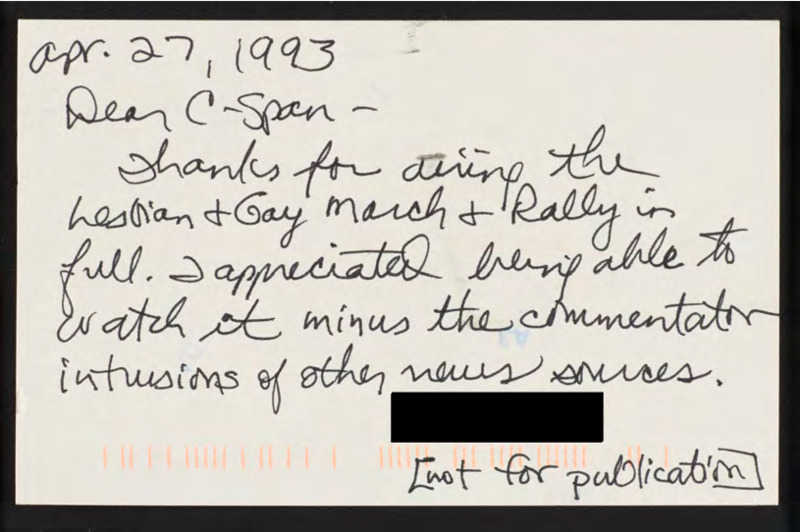 apr. 27, 1993
Dear C-Span -
Thanks for airing the
Lesbian + Gay March + Rally in
full. I appreciated being able to
watch it minus the commentator
intrusions of other news sources.
[not for publication]